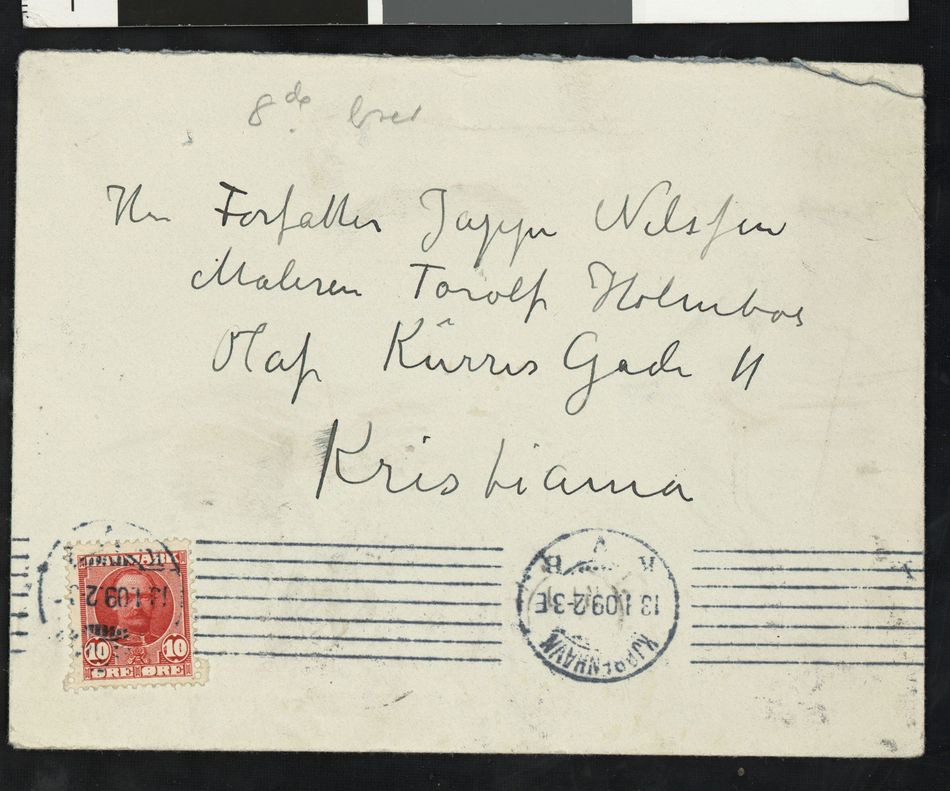 8de brev
Herr Forfatter Jappe Nilssen
Maleren Torolf Holmboe
Olaf Kürres Gade 11
Kristiania
DANMARK
13.1.09.2
10 10
ØRE ØRE
KJØBENHAVN
13.1.09.2-3E
K B